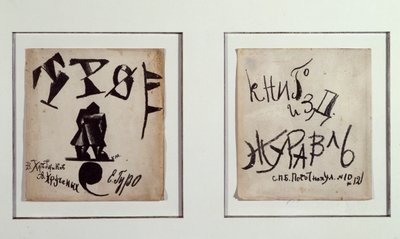 ТРОЕ
В. Хлебников
А. Крученых
Е. Гуро
КНИГО
ИЗД.
ЖУРАВЛЬ
С.П.Б. Песочная ул. №10